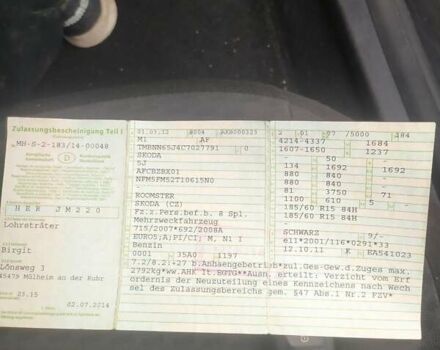 Zulassungsbescheinigung Teil I
MH-S-2-183/14-00048
D
HER JM220
Lohsträter
Birgit
Lönsweg 3
45479 Mülheim an der Ruhr
02.07.2014
M1 AF
TMBNN65J4C7027791 0
SKODA
5J
AFCBZBX01
NFM5FM52T10615N0
ROOMSTER
SKODA (CZ)
Fz.z.Pers.bef.b. 8 Spl.
Mehrzweckfahrzeug
715/2007*692/2008A
EURO5;A;PI/CI; M, N1 I
Benzin
0001 35A0 1197
4214-4337 1684
1607-1650 1237
- 50 -
134 1692 1692
880 840 -
880 840 -
81 3750 71
1100 610 5 -
185/60 R15 84H
185/60 R15 84H
-
SCHWARZ 9/-
e11*2001/116*0291*33
12.10.11 K EA541023
7.2/8.2:+27 b.Anhaengebetrieb*zul.Ges-Gew.d.Zuges max.
2792kg*ww.AHK lt.EGTG**Ausn. erteilt: Verzicht vom Erf
ordernis der Neuzuteilung eines Kennzeichens nach Wech
sel des Zulassungsbereichs gem. §47 Abs.1 Nr.2 FZV*